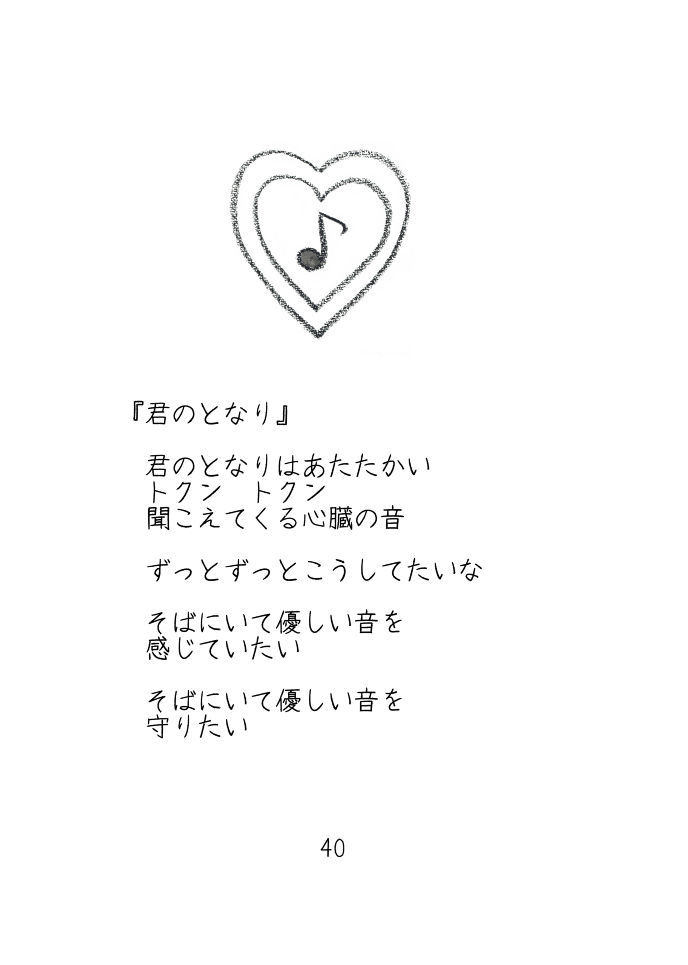 『君のとなり』
君のとなりはあたたかい
トクン　トクン
聞こえてくる心臓の音
ずっとずっとこうしてたいな
そばにいて優しい音を
感じていたい
そばにいて優しい音を
守りたい
40